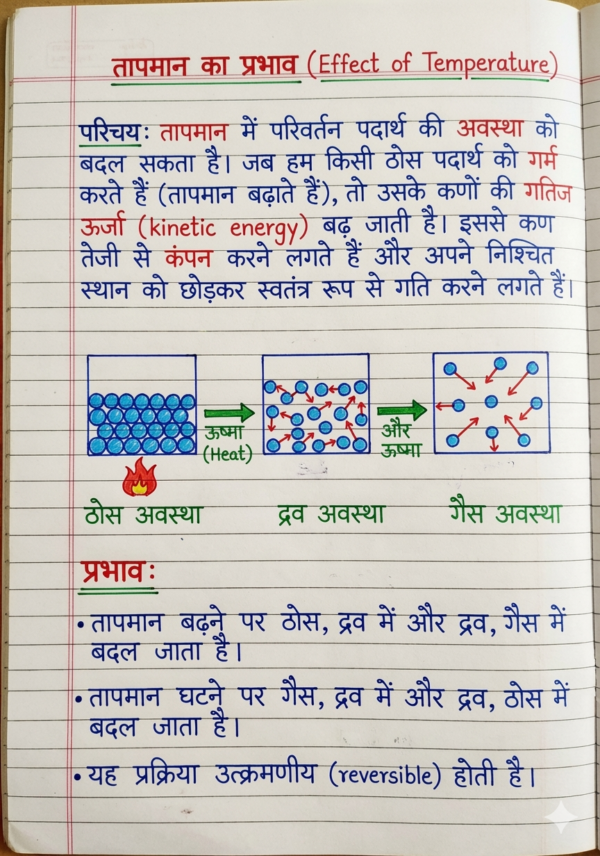 तापमान का प्रभाव (Effect of Temperature)
परिचय: तापमान में परिवर्तन पदार्थ की अवस्था को
बदल सकता है। जब हम किसी ठोस पदार्थ को गर्म
करते हैं (तापमान बढ़ाते हैं), तो उसके कणों की गतिज
ऊर्जा (kinetic energy) बढ़ जाती है। इससे कण
तेजी से कंपन करने लगते हैं और अपने निश्चित
स्थान को छोड़कर स्वतंत्र रूप से गति करने लगते हैं।
ऊष्मा
(Heat)
और
ऊष्मा
ठोस अवस्था
द्रव अवस्था
गैस अवस्था
प्रभाव:
• तापमान बढ़ने पर ठोस, द्रव में और द्रव, गैस में
बदल जाता है।
• तापमान घटने पर गैस, द्रव में और द्रव, ठोस में
बदल जाता है।
• यह प्रक्रिया उत्क्रमणीय (reversible) होती है।